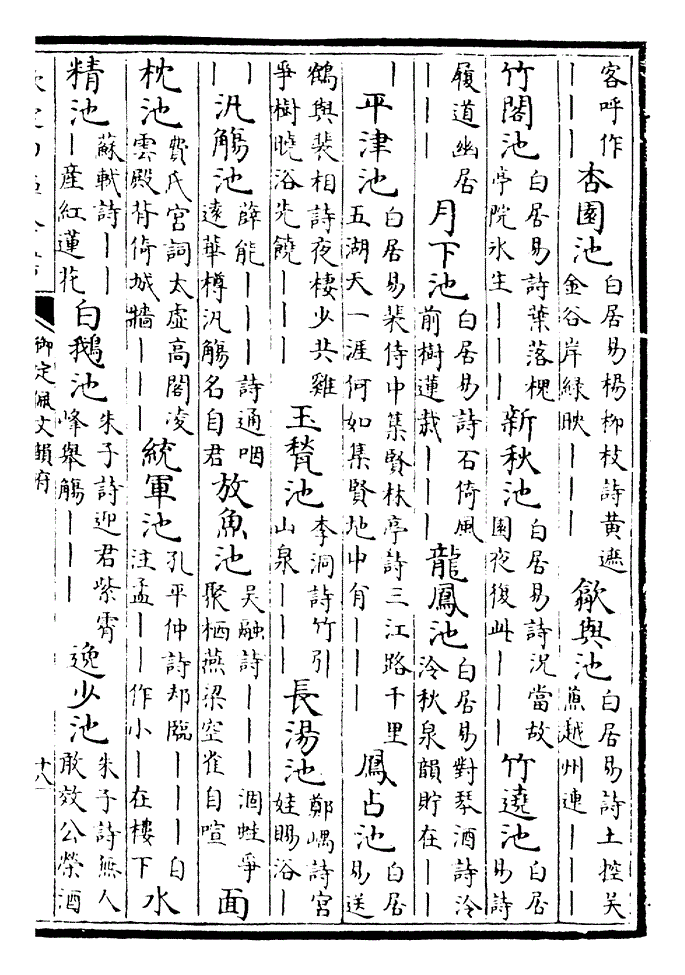 客呼作｜｜｜ 杏園池 白居易楊柳枝詩黃遮金谷岸綠映｜｜｜ 歙與池 白居易詩土控吳兼越州連｜｜｜
竹閣池 白居易詩葉落槐亭院冰生｜｜｜ 新秋池 白居易詩況當故園夜復此｜｜｜ 竹遶池 白居易詩
履道幽居｜｜｜ 月下池 白居易詩石倚風前樹蓮栽｜｜｜ 龍鳳池 白居易對琴酒詩泠泠秋泉韻貯在｜｜
｜ 平津池 白居易裴侍中集賢林亭詩三江路千里五湖天一涯何如集賢地中有｜｜｜ 鳳占池 白居易送
鶴與裴相詩夜棲少共雞爭樹曉浴先饒｜｜｜ 玉甃池 李洞詩竹引山泉｜｜｜ 長湯池 鄭嵎詩宮娃賜浴｜
｜｜ 汎觴池 薛能｜｜｜詩通咽遠華樽汎觴名自君 放魚池 吳融詩｜｜｜涸蛙爭聚栖燕梁空雀自喧 面
枕池 費氏宮詞太虛高閣凌雲殿背倚城牆｜｜｜ 統軍池 孔平仲詩却臨｜｜｜自注孟｜｜｜作小｜在樓下 水
精池 蘇軾詩｜｜｜產紅蓮花 白鵝池 朱子詩迎君紫霄峰舉觴｜｜｜ 逸少池 朱子詩無人敢效公榮酒
御定佩文韻府 十八